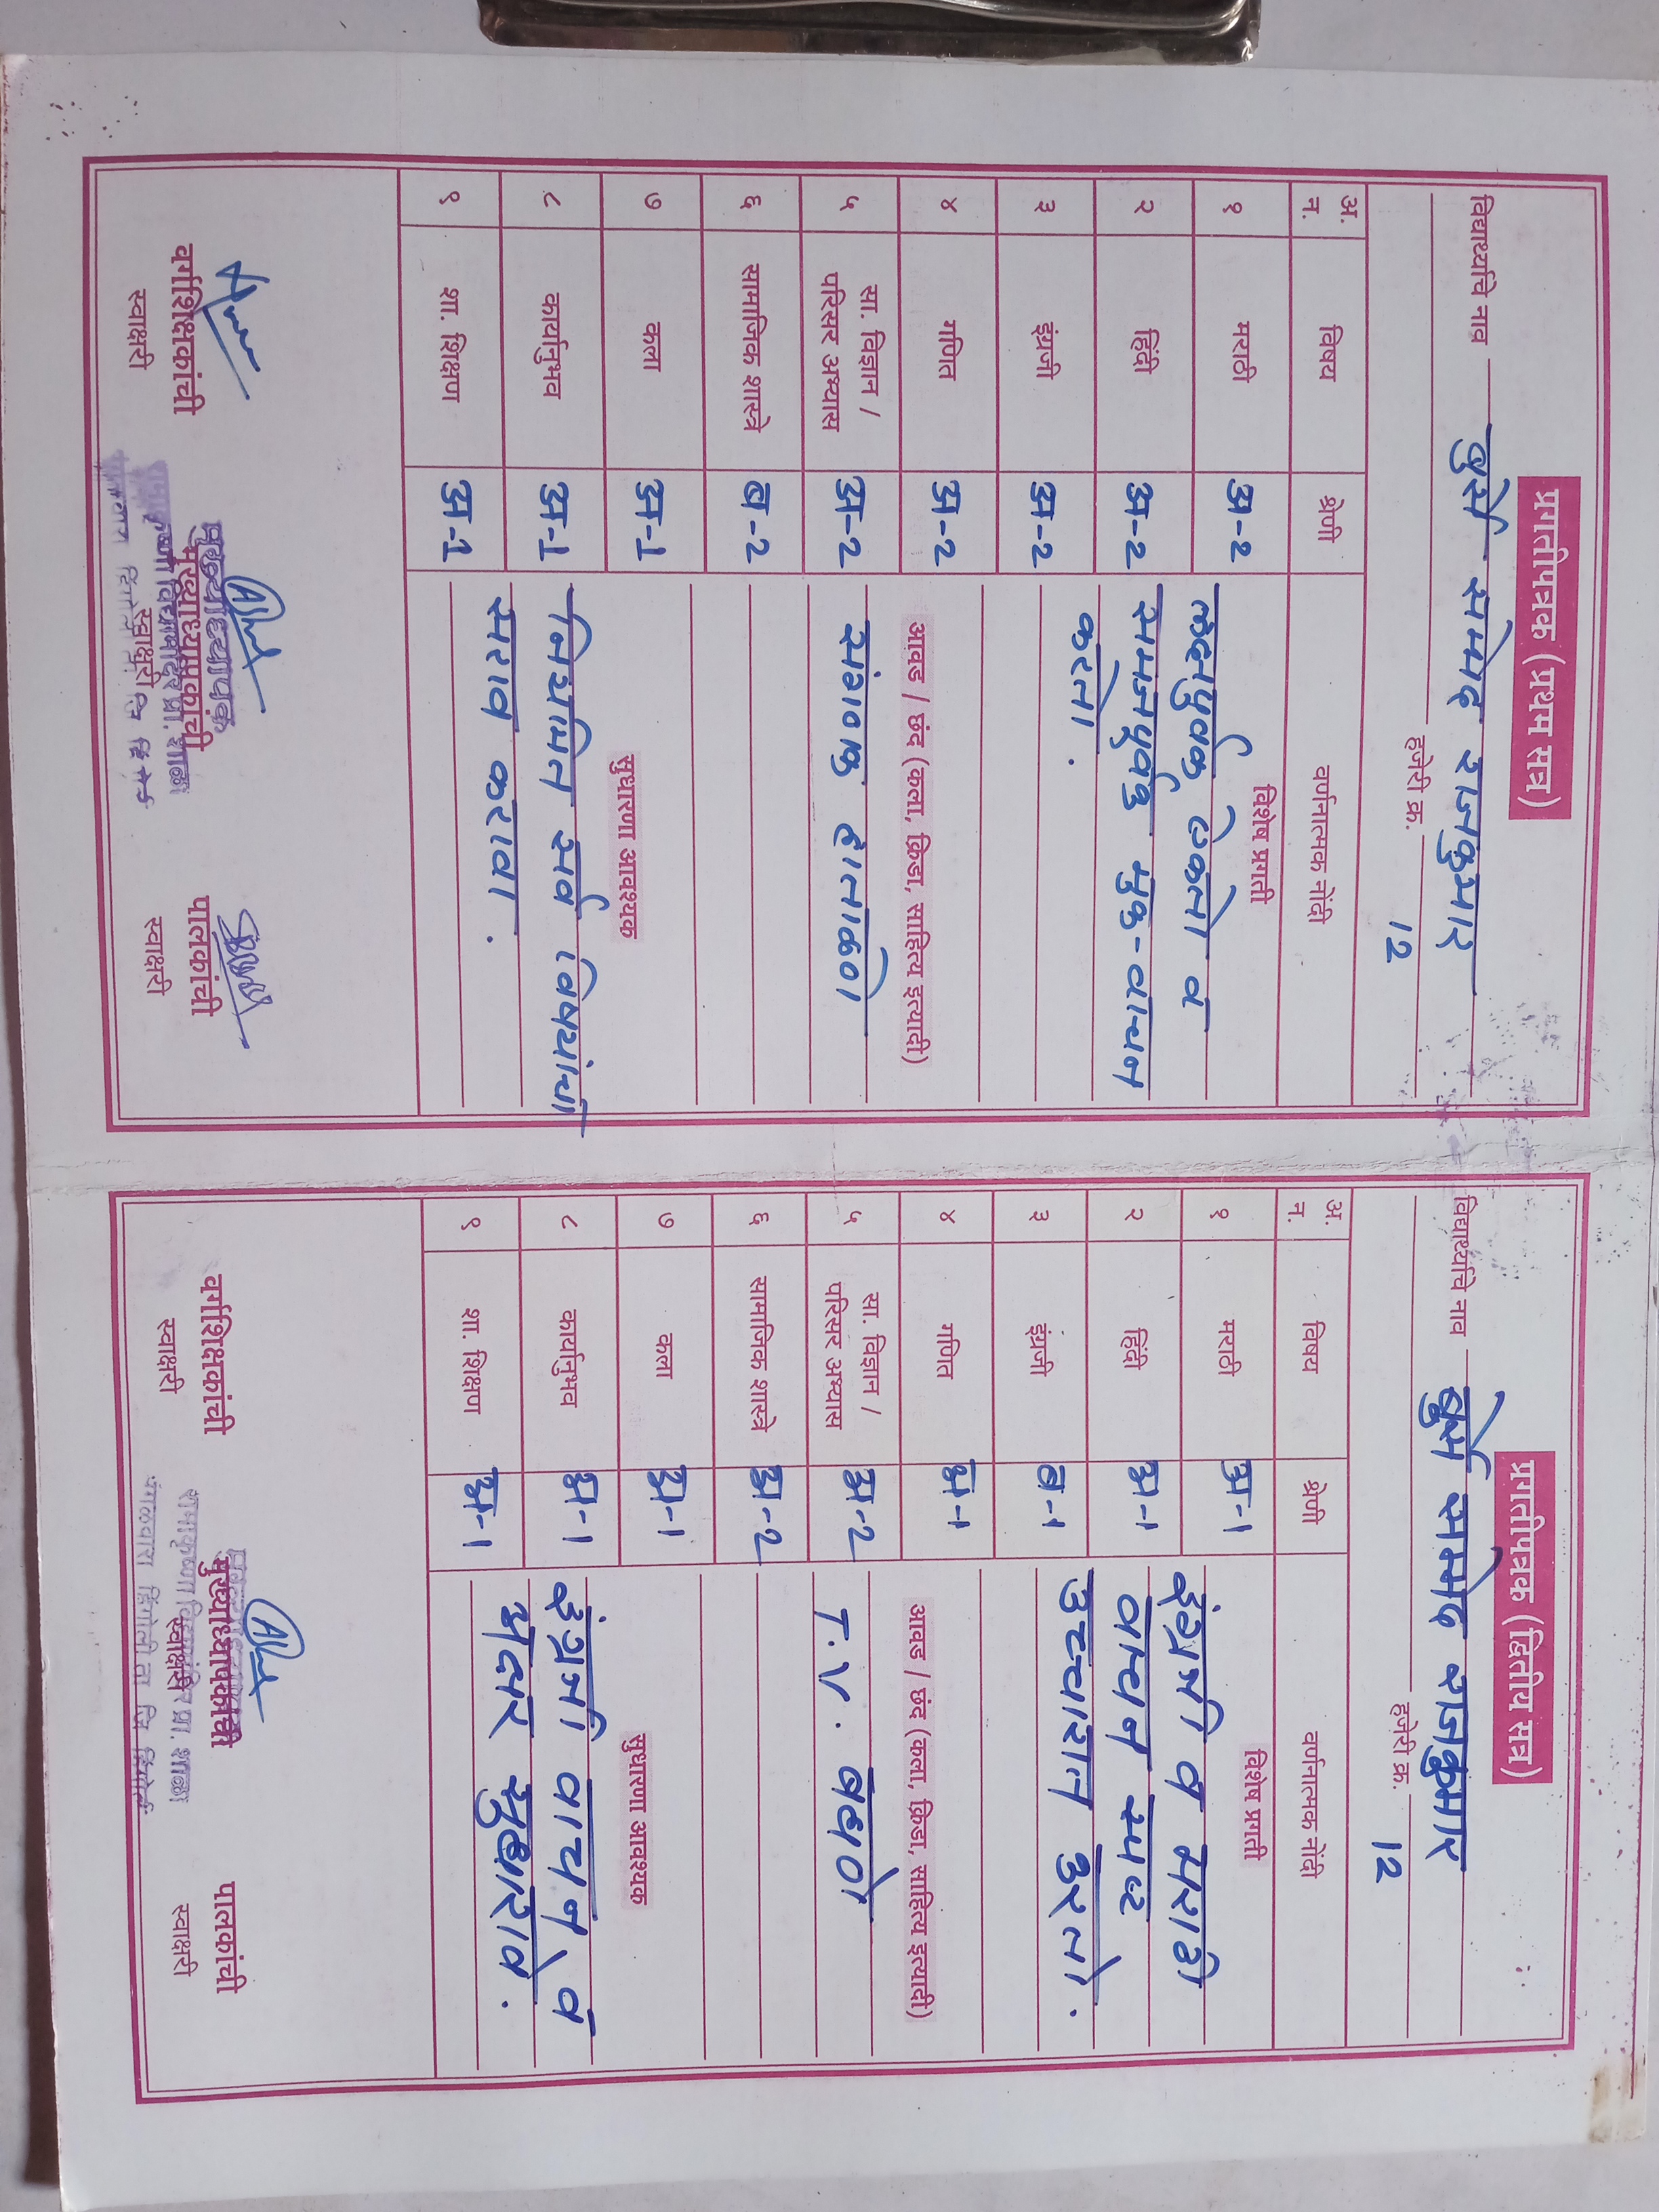 प्रगतीपत्रक (प्रथम सत्र)
विद्यार्थ्याचे नाव बुर्से सम्मेद राजकुमार
हजेरी क्र. 12
अ. न. विषय श्रेणी वर्णनात्मक नोंदी
विशेष प्रगती
१ मराठी अ-2 लक्षपुर्वक ऐकतो व
२ हिंदी अ-2 समजपुर्वक मुक-वाचन
३ इंग्रजी अ-2 करतो.
४ गणित अ-2 आवड / छंद (कला, क्रिडा, साहित्य इत्यादी)
५ सा. विज्ञान / परिसर अभ्यास अ-2 संगणक हाताळणे
६ सामाजिक शास्त्रे ब-2
७ कला अ-1 सुधारणा आवश्यक
८ कार्यानुभव अ-1 नियमित सर्व विषयांचा
९ शा. शिक्षण अ-1 सराव करावा.
वर्गशिक्षकांची मुख्याध्यापकांची पालकांची
स्वाक्षरी स्वाक्षरी स्वाक्षरी
मुख्याध्यापक
प्रगतीपत्रक (द्वितीय सत्र)
विद्यार्थ्याचे नाव बुर्से सम्मेद राजकुमार
हजेरी क्र. 12
अ. न. विषय श्रेणी वर्णनात्मक नोंदी
विशेष प्रगती
१ मराठी अ-1 इंग्रजी व मराठी
२ हिंदी अ-1 वाचन स्पष्ट
३ इंग्रजी ब-1 उच्चारात करतो.
४ गणित अ-1 आवड / छंद (कला, क्रिडा, साहित्य इत्यादी)
५ सा. विज्ञान / परिसर अभ्यास अ-2 T.V. बघणे
६ सामाजिक शास्त्रे अ-2
७ कला अ-1 सुधारणा आवश्यक
८ कार्यानुभव अ-1 इंग्रजी वाचन व
९ शा. शिक्षण अ-1 अक्षर सुधारावे.
वर्गशिक्षकांची मुख्याध्यापकांची पालकांची
स्वाक्षरी स्वाक्षरी स्वाक्षरी